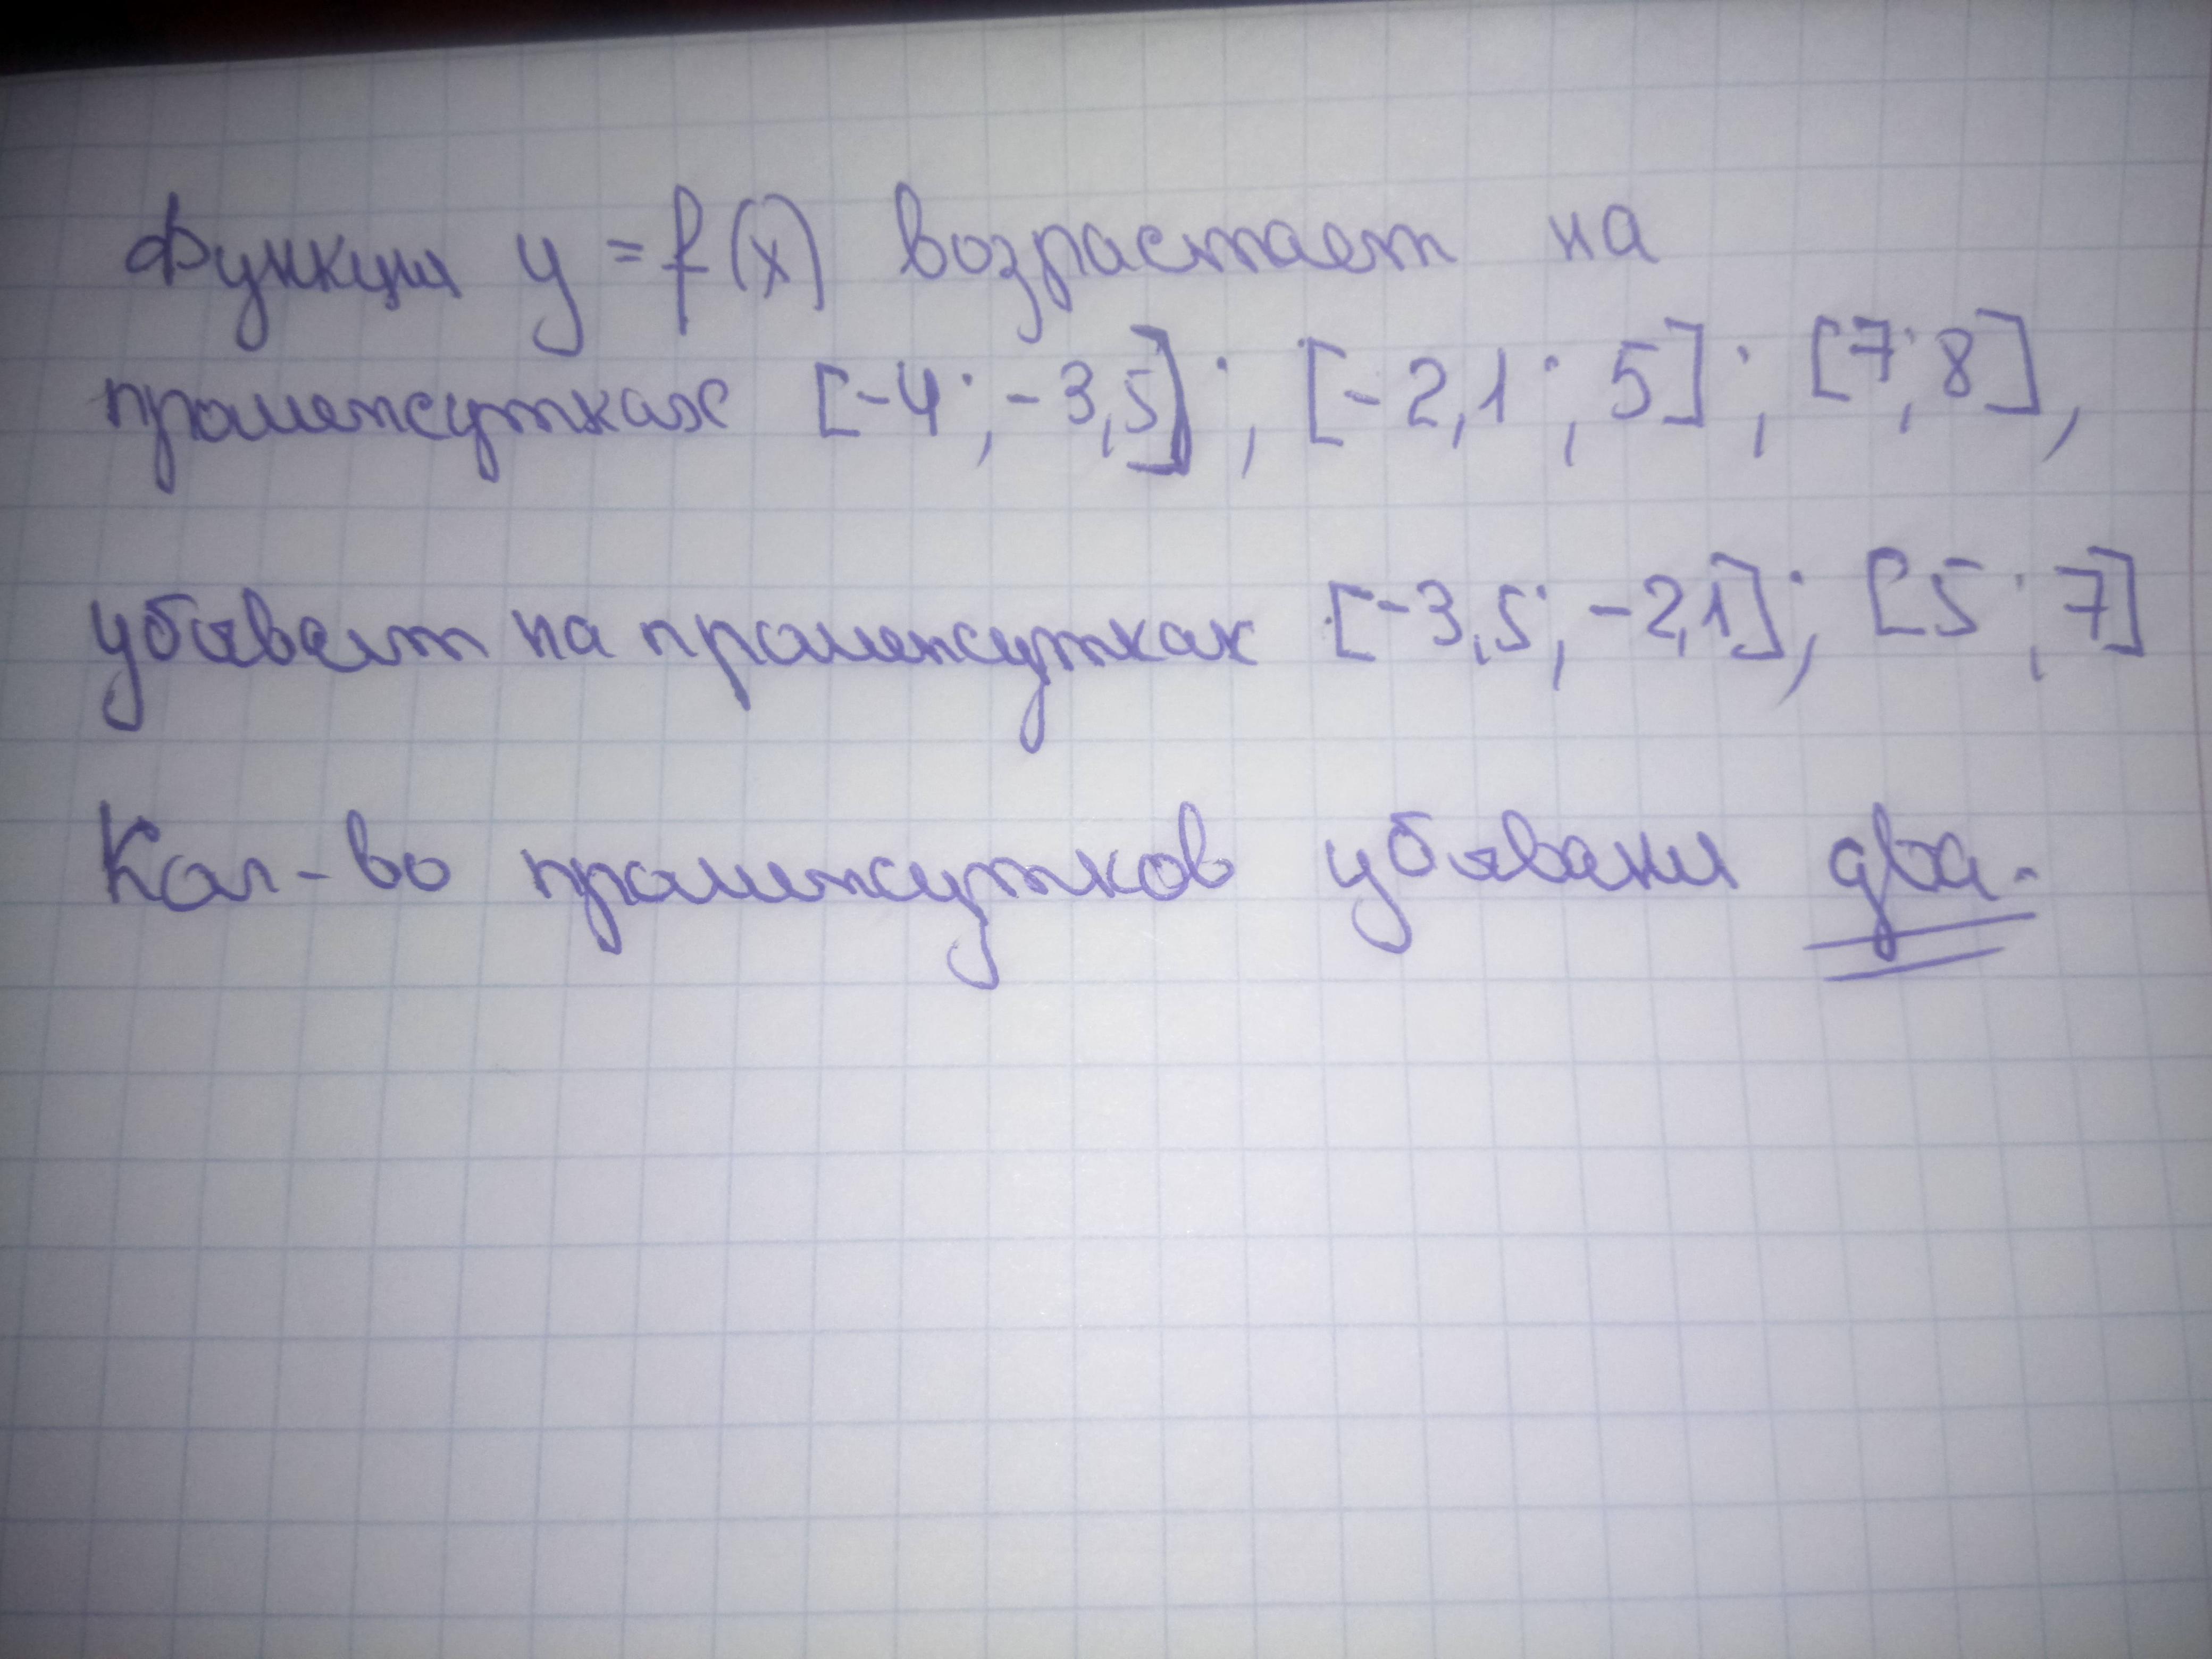 Функция y = f(x) возрастает на
промежутках [-4; -3,5]; [-2,1; 5]; [7; 8],
убывает на промежутках [-3,5; -2,1]; [5; 7]
Кол-во промежутков убывани два.